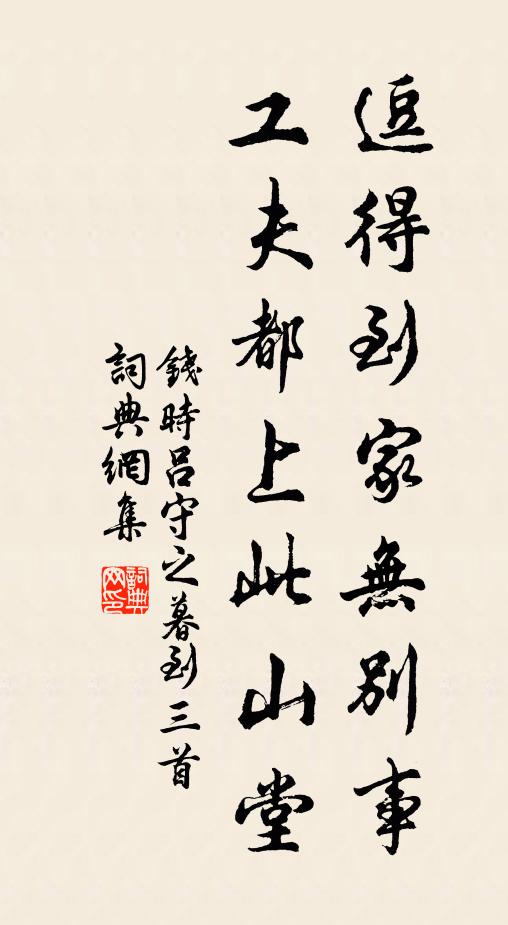 逗得到家無別事
工夫都上此山堂
錢時呂守之暮到三首
詞典網集
詞典網印